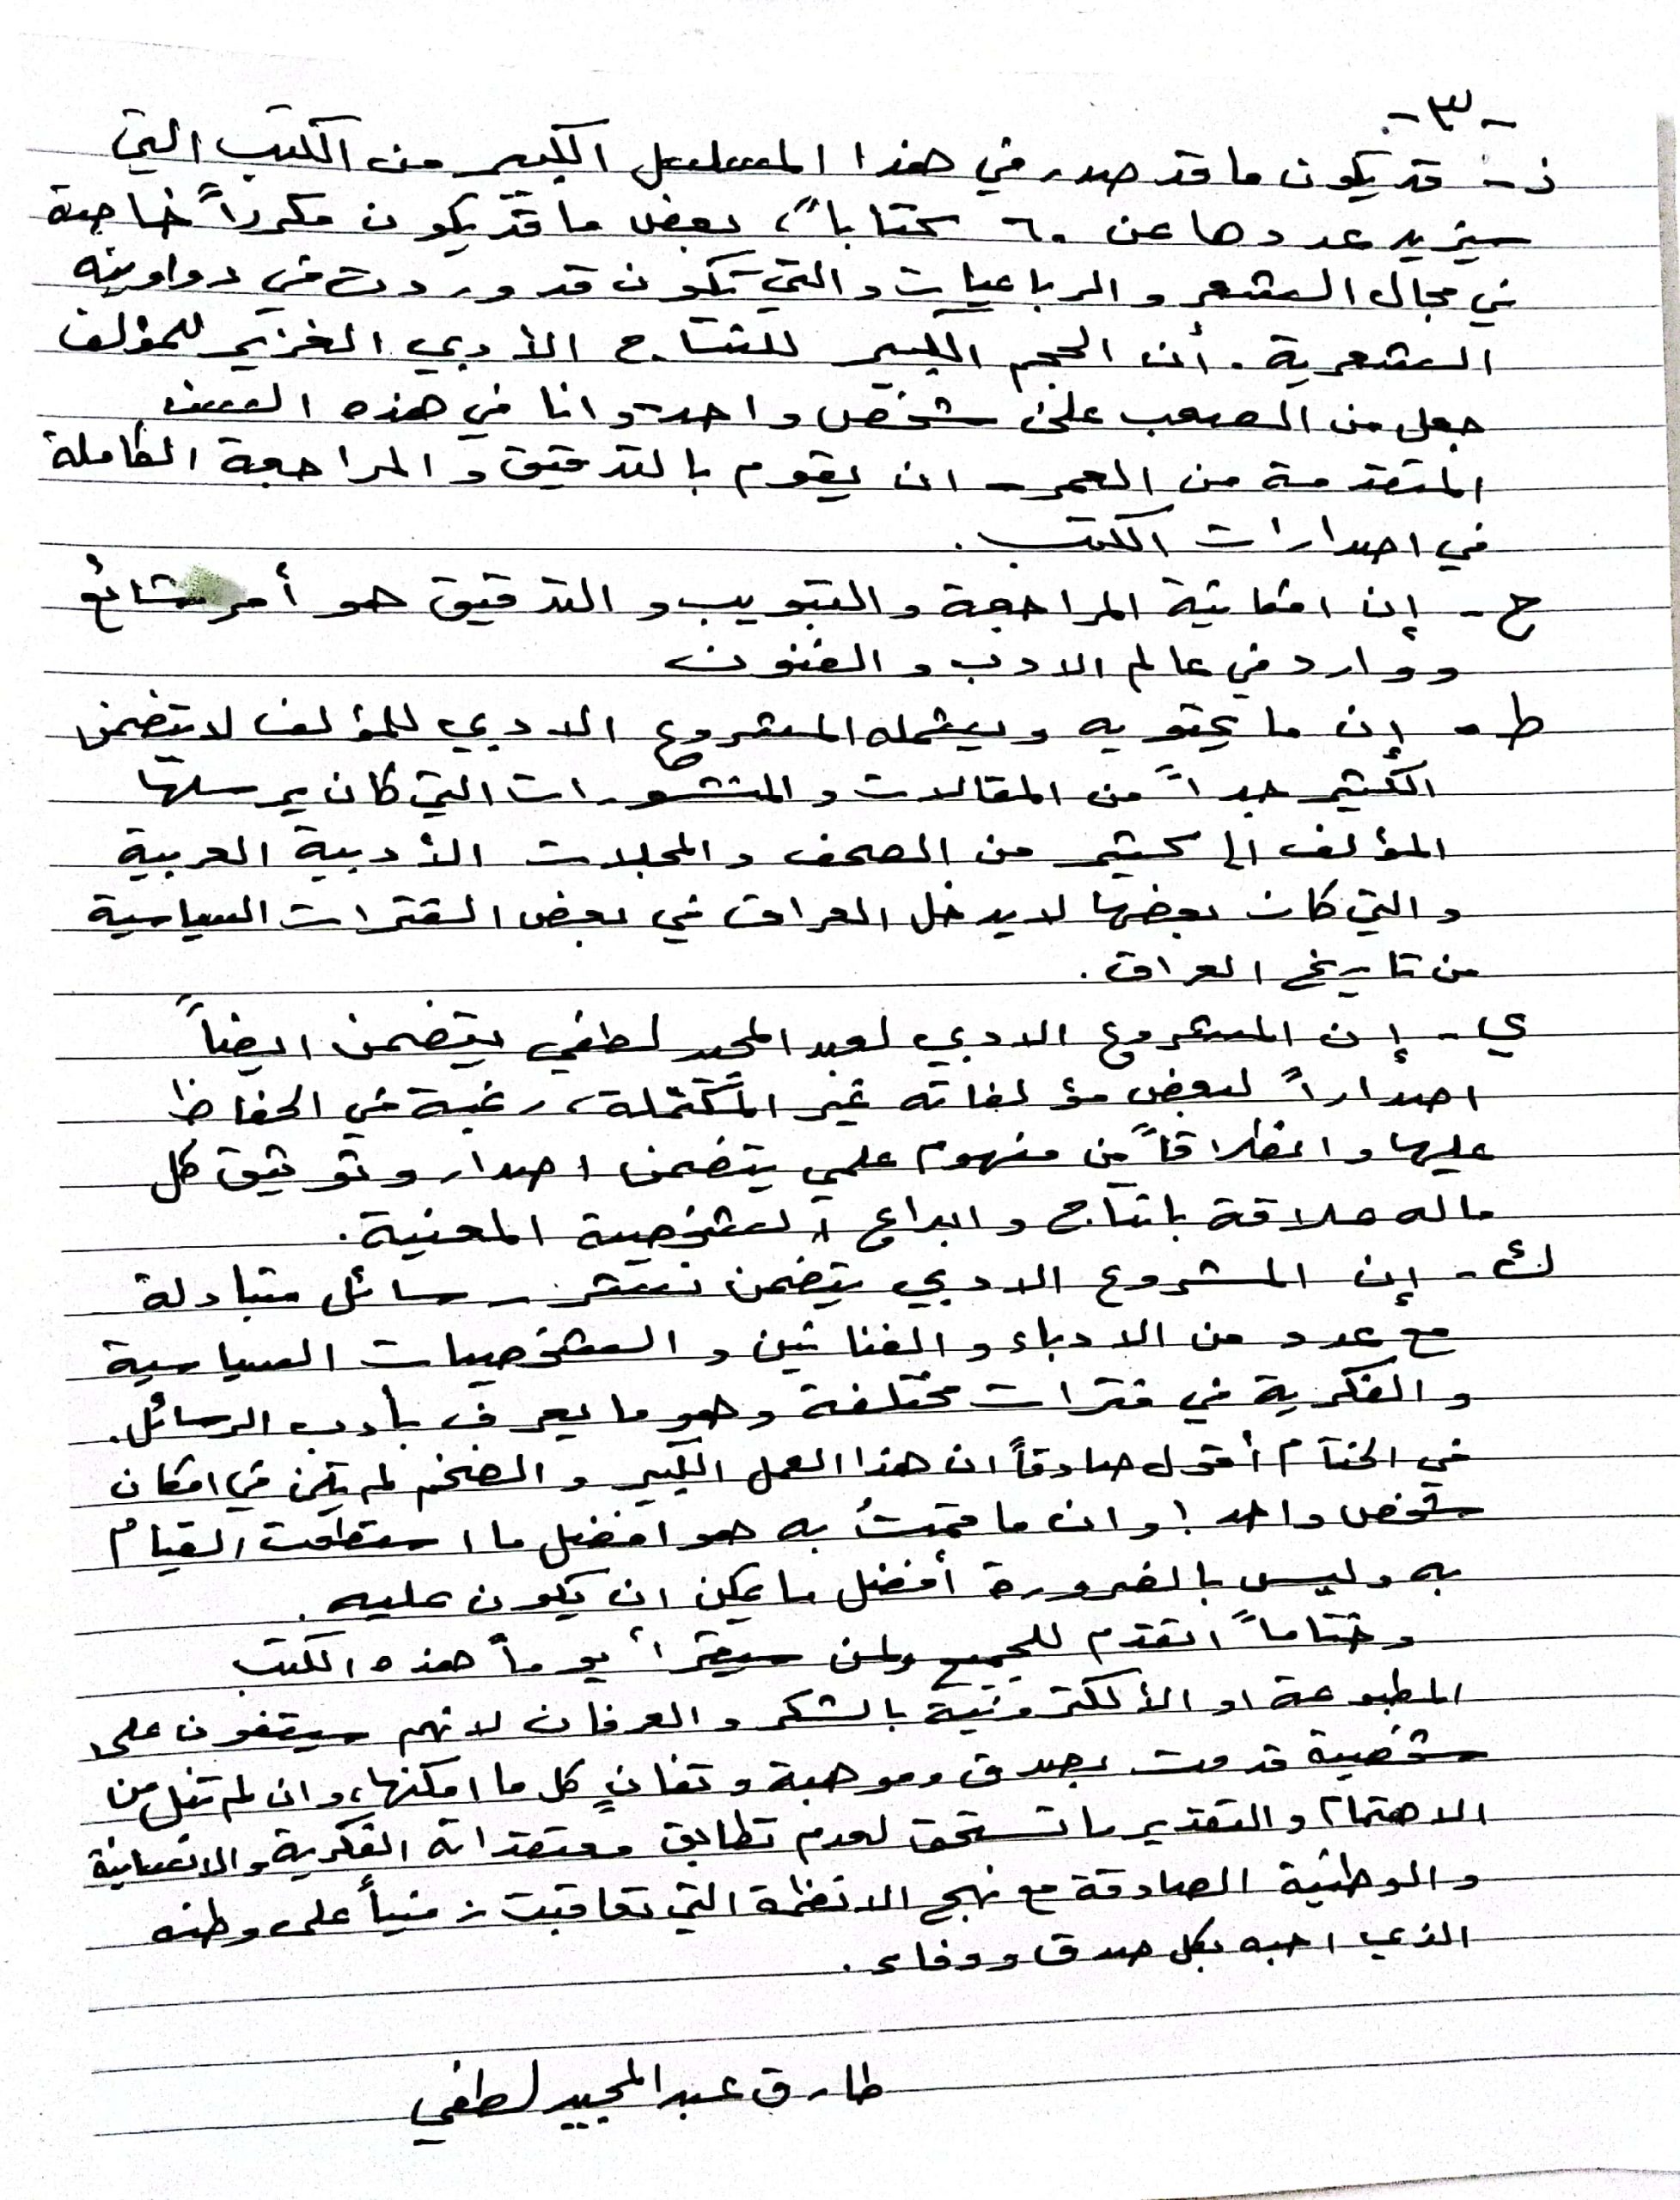 -٣-
ز- قد يكون ما قد صدر في هذا المسلسل الكبير من الكتب التي
سيزيد عددها عن ٦٠ كتاباً، بعض ما قد يكون مكرراً خاصة
في مجال الشعر والرباعيات والتي تكون قد وردت في دواوينه
الشعرية. أن الحجم الكبير للنتاج الأدبي الغزير للمؤلف
جعل من الصعب على شخص واحد وانا في هذه السن
المتقدمة من العمر - ان يقوم بالتدقيق والمراجعة الكاملة
في اصدارات الكتب.
ح- إن امكانية المراجعة والتبويب والتدقيق هو أمر شائع
ووارد في عالم الادب والفنون
ط- إن ما يحتويه ويشمله المشروع الادبي للمؤلف لا يتضمن
الكثير جداً من المقالات والمنشورات التي كان يرسلها
المؤلف الى كثير من الصحف والمجلات الأدبية العربية
والتي كان بعضها لا يدخل العراق في بعض الفترات السياسية
من تاريخ العراق.
ي- إن المشروع الادبي لعبد المجيد لطفي يتضمن ايضاً
اصداراً لبعض مؤلفاته غير المكتملة، رغبة في الحفاظ
عليها وانطلاقاً من مفهوم علمي يتضمن اصدار وتوثيق كل
ماله علاقة بانتاج وابداع الشخصية المعنية.
ك- إن المشروع الادبي يتضمن نشر رسائل متبادلة
مع عدد من الادباء والفنانين والشخصيات السياسية
والفكرية في فترات مختلفة وهو ما يعرف بأدب الرسائل.
في الختام أقول صادقاً ان هذا العمل الكبير والضخم لم يكن في امكان
شخص واحد! وان ما قمتُ به هو افضل ما استطعت القيام
به وليس بالضرورة أفضل ما يمكن ان يكون عليه.
وختاماً اتقدم للجميع ولمن سيقرأ يوماً هذه الكتب
المطبوعة او الألكترونية بالشكر والعرفان لانهم سيقفون على
شخصية قدمت بصدق وموهبة وتفانٍ كل ما امكنها، وان لم تنل من
الاهتمام والتقدير ما تستحق لعدم تطابق معتقداته الفكرية والانسانية
والوطنية الصادقة مع نهج الانظمة التي تعاقبت زمنياً على وطنه
الذي احبه بكل صدق ووفاء.
طارق عبد المجيد لطفي